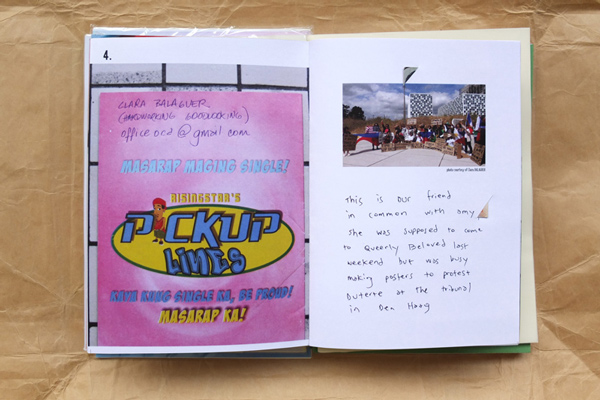 4.
CLARA BALAGUER
(HARDWORKING GOODLOOKING)
officeocd@gmail.com
MASARAP MAGING SINGLE!
RISINGSTAR'S
PICKUP
LINES
KAYA KUNG SINGLE KA, BE PROUD!
MASARAP KA!
photo courtesy of
This is our friend
in common with amy
she was supposed to come
to Queerly Beloved last
weekend but was busy
making posters to protest
Duterte at the tribunal
in Den Haag